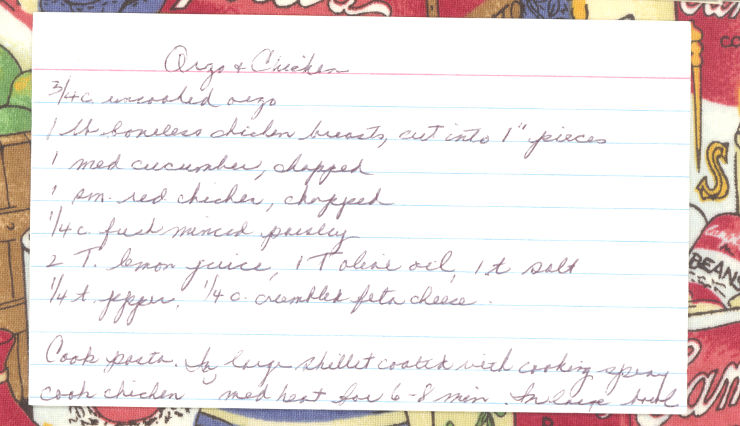 Orzo + Chicken
3/4 c. uncooked orzo
1 lb boneless chicken breasts, cut into 1" pieces
1 med cucumber, chopped
1 sm. red chicken, chopped
1/4 c. fresh minced parsley
2 T. lemon juice, 1 T olive oil, 1 t salt
1/4 t. pepper, 1/4 c. crumbled feta cheese.
Cook pasta. In large skillet coated with cooking spray
cook chicken med heat for 6-8 min. In large bowl
S
BEANS